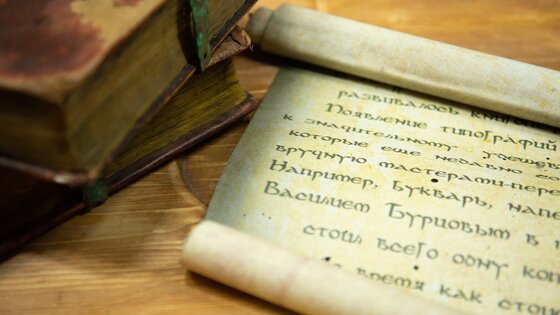 развивалось
Появление типографий
к значительному
которые еще недавно
вручную мастерами-пере
Например, Букварь, нап
Василием Бурцовым в
стоил всего одну коп
время как стои